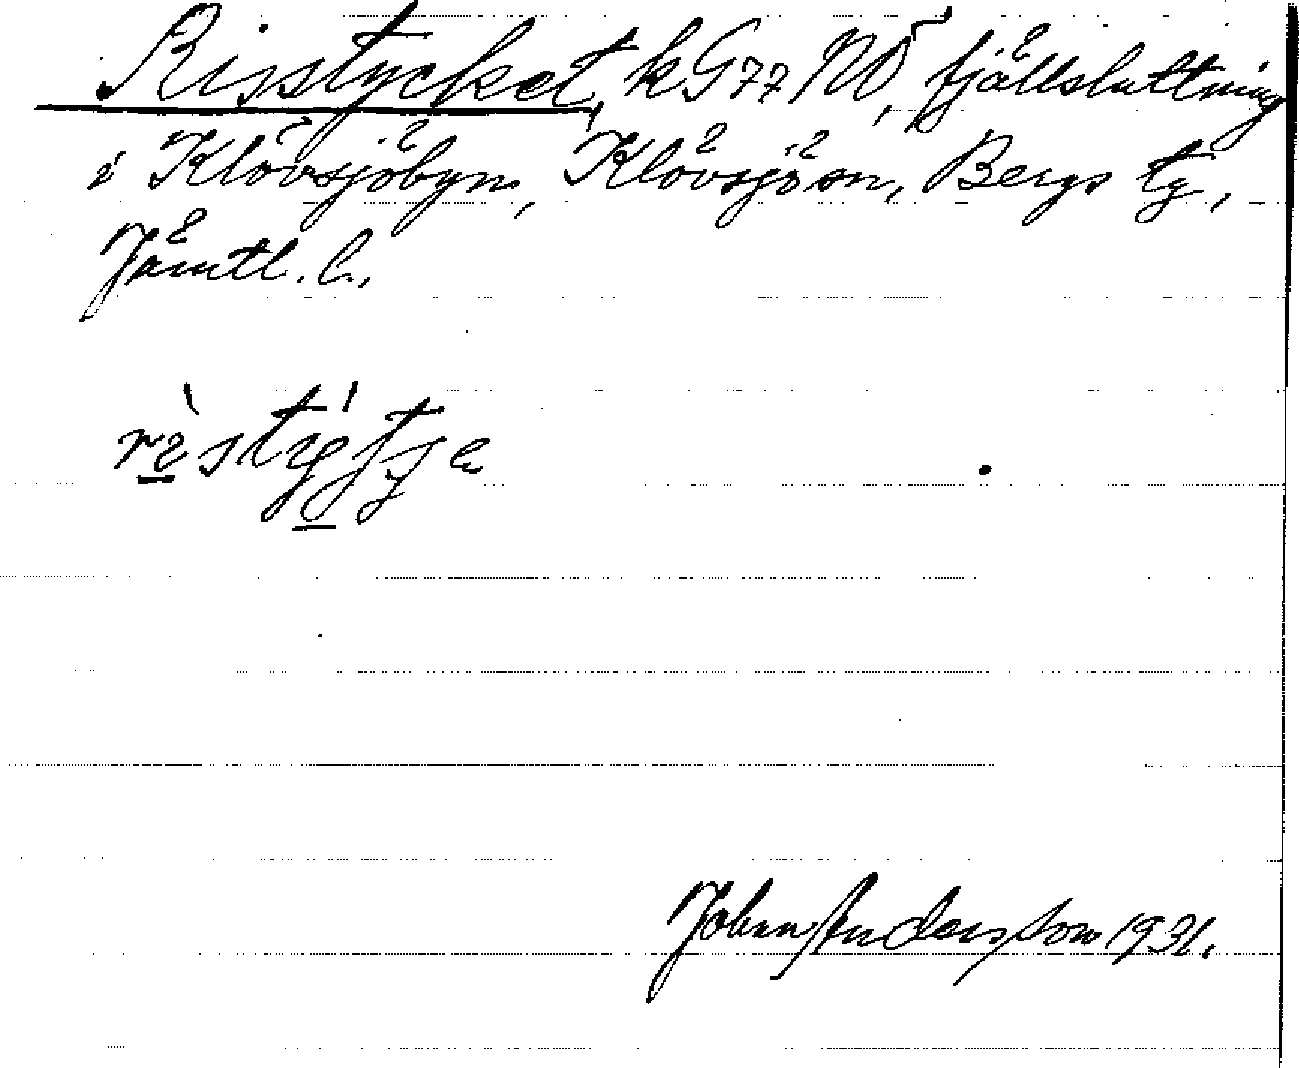 Risstycket, kG77 NÖ, fjällsluttning
i Klövsjöbyn, Klövsjö sn, Bergs tg,
Jämtl. l.
John Andersson 1931.